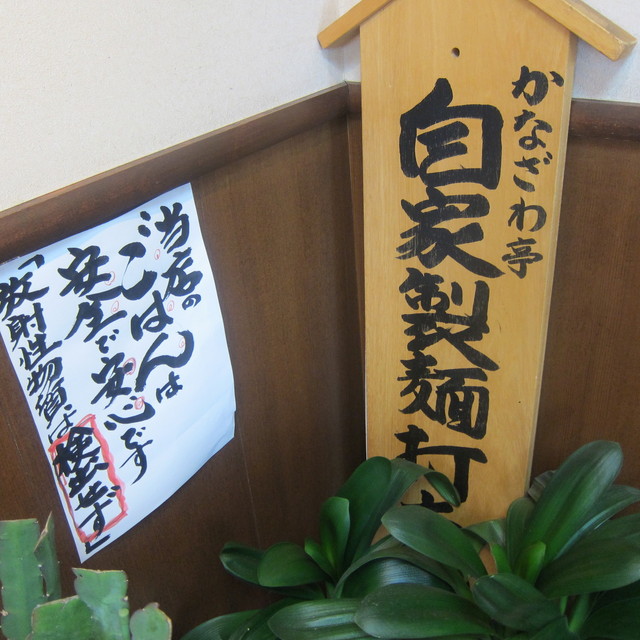 かなざわ亭
自家製麺打
当店の
ごはんは
安全で安心です
「放射性物質は検出せず」